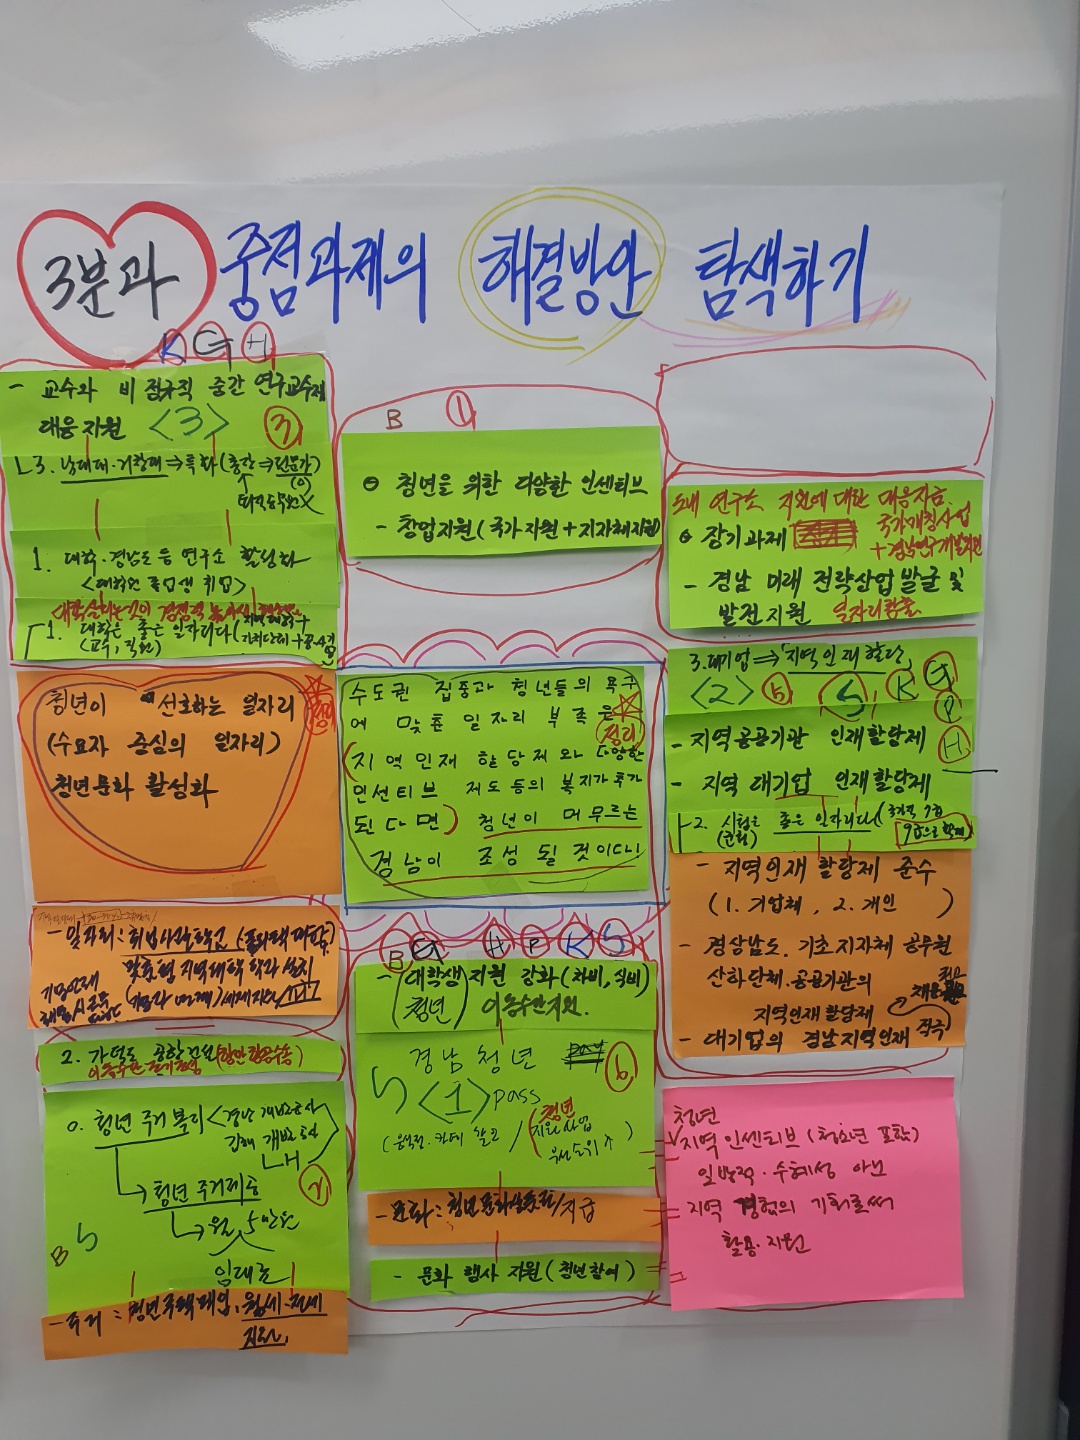 3분과 중점과제의 해결방안 탐색하기
K G H
- 교수와 비정규직 중간 연구교수제
대응지원 <3> ③
3. 남해대·거창대 ⇒ 특화 ( ⇒ 전문가)
1. 대학·경남도 등 연구소 활성화
<대학원 졸업생 취업>
1. 대학은 좋은 일자리다
(교수, 직원)
청년이 선호하는 일자리
(수요자 중심의 일자리)
청년문화 활성화
- 일자리:
맞춤형 지역대학 학과 설치
2. 가덕도 공항건설
0. 청년 주거 복지 < 경남 개발공사
김해 개발공사
LH
→ 청년 주거제공
→ 월 5만원
임대료
B
- 주거 : 청년주택매입, 월세·전세
지원
B ①
⊙ 청년을 위한 다양한 인센티브
- 창업지원 (국가지원 + 지자체지원)
수도권 집중과 청년들의 욕구
에 맞춘 일자리 부족은
정리
(지역인재 할당제와 다양한
인센티브 제도 등의 복지가 추가
된다면) 청년이 머무르는
경남이 조성 될 것이다!
B G H P K S
- 대학생 지원 강화 (차비, 식비)
(청년) 이동수단지원.
경남청년
<1> pass
(음식점·카페 할인 /
청년
지원사업
우선순위 ↑)
- 문화 : 지급
- 문화 행사 지원 (청년참여)
도내 연구소 지원에 대한 대응자금.
⊙ 장기과제
+ 경남연구개발지원
- 경남 미래 전략산업 발굴 및
발전지원 일자리창출
3. 대기업 ⇒ 지역인재할당
<2> ⑤ S K G
P
H
- 지역공공기관 인재할당제
- 지역 대기업 인재할당제
2. 시험은 좋은 일자리다
- 지역인재 할당제 준수
(1. 기업체, 2. 개인 )
- 경상남도, 기초지자체 공무원
산하단체, 공공기관의
지역인재할당제
- 대기업의 경남지역인재
청년
지역인센티브 (청소년 포함)
일방적·수혜성 아닌
지역 경험의 기회로써
활용·지원